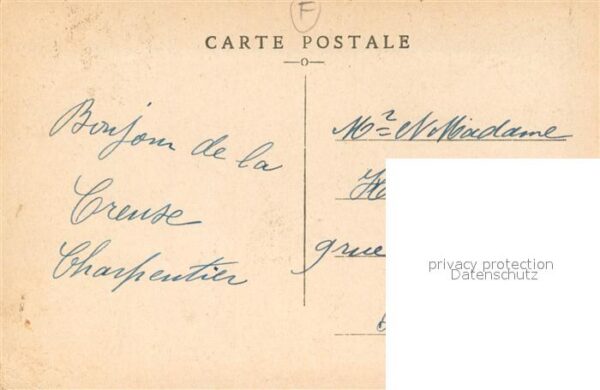 F
CARTE POSTALE
Bonjour de la
Creuse
Charpentier
Mr et Madame
privacy protection
Datenschutz